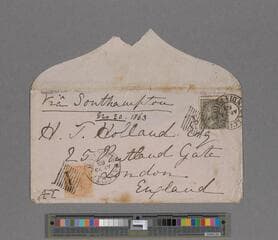 Via Southampton
Dec 20. 1863
H. T. Holland Esq
25 Rutland Gate
London
England